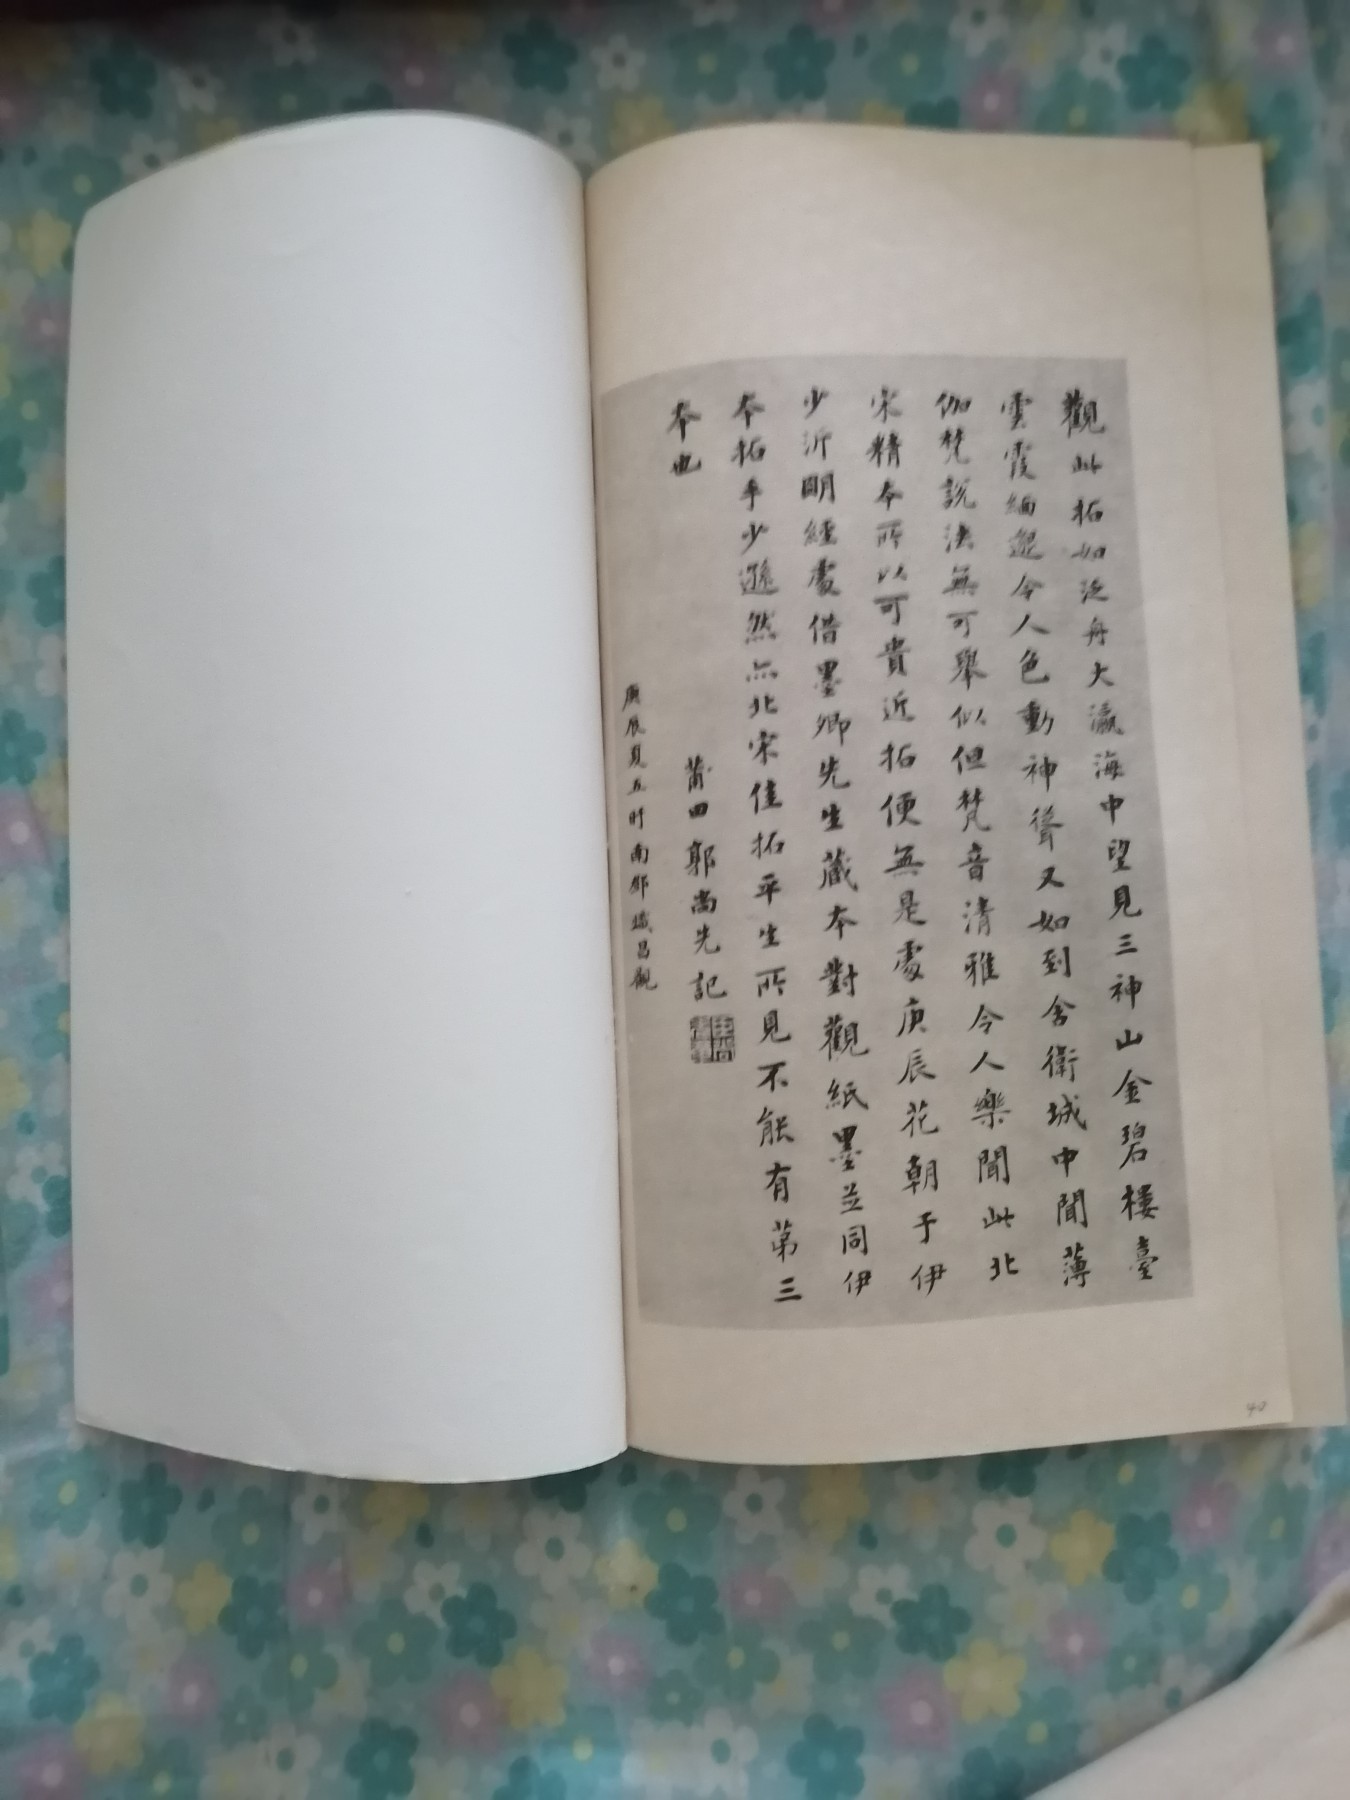 觀此拓如泛舟大瀛海中望見三神山金碧樓臺
雲霞緬邈令人色動神聳又如到舍衛城中聞薄
伽梵說法無可舉似但梵音清雅令人樂聞此北
宋精本所以可貴近拓便無是處庚辰花朝于伊
少沂明經處借墨卿先生藏本對觀紙墨並同伊
本拓手少遜然亦北宋佳拓平生所見不能有第三
本也
莆田郭尚先記
庚辰夏五 南 昌觀
40